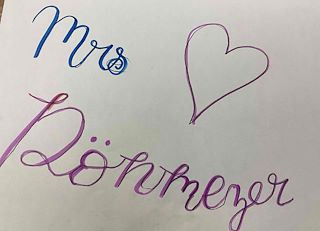 Mrs
Röhmezer